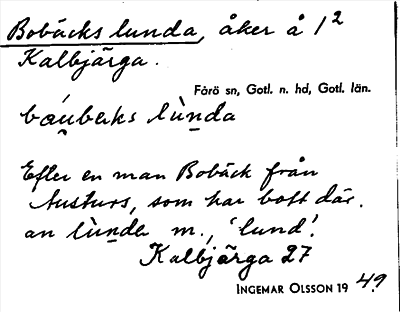 Bobäcks lunda, åker å 1²
Kalbjärga.
Fårö sn, Gotl. n. hd, Gotl. län.
bǫu̯beks lùṇda
Efter en man Bobäck från
Austurs, som har bott där.
an lùṇda m., 'lund'.
Kalbjärga 27
INGEMAR OLSSON 19 49